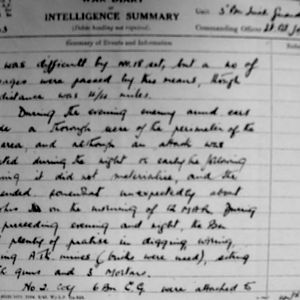 WAR DIARY
INTELLIGENCE SUMMARY
(Delete heading not required)
Unit 3 Bn Irish Guards
Commanding Officer
Summary of Events and Information
was difficult by No. 18 set, but a no of
ages were passed by this means, though
distance was 4/4 miles.
During the evening enemy armd cars
a thorough were of the perimeter of the
area, and although an attack was
ted during the night or early the following
ing it did not materialise, and the
ended somewhat unexpectedly about
hrs on the morning of 12 MAR. During
preceding evening and night, the Bn
plenty of practice in digging, wiring,
A Tk mines (bricks were used), siting
guns and 3" Mortars.
No. 2 Coy 6 Bn C.G. were attached to